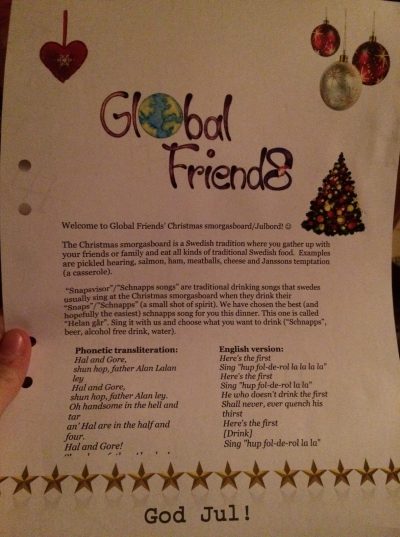 Global
Friends
Welcome to Global Friends' Christmas smorgasboard/Julbord! ☺
The Christmas smorgasboard is a Swedish tradition where you gather up with
your friends or family and eat all kinds of traditional Swedish food. Examples
are pickled bearing, salmon, ham, meatballs, cheese and Janssons temptation
(a casserole).
"Snapsvisor"/"Schnapps songs" are traditional drinking songs that swedes
usually sing at the Christmas smorgasboard when they drink their
"Snaps"/"Schnapps" (a small shot of spirit). We have chosen the best (and
hopefully the easiest) schnapps song for you this dinner. This one is called
"Helan går". Sing it with us and choose what you want to drink ("Schnapps",
beer, alcohol free drink, water).
Phonetic transliteration:
Hal and Gore,
shun hop, father Alan Lalan
ley
Hal and Gore,
shun hop, father Alan ley.
Oh handsome in the hell and
tar
an' Hal are in the half and
four.
Hal and Gore!
English version:
Here's the first
Sing "hup fol-de-rol la la la la"
Here's the first
Sing "hup fol-de-rol la la"
He who doesn't drink the first
Shall never, ever quench his
thirst
Here's the first
[Drink]
Sing "hup fol-de-rol la la la"
God Jul!